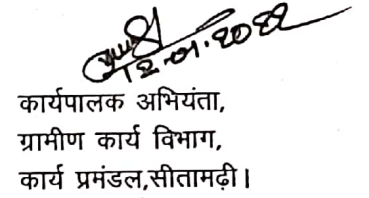 12.01.2022
कार्यपालक अभियंता,
ग्रामीण कार्य विभाग,
कार्य प्रमंडल,सीतामढ़ी।